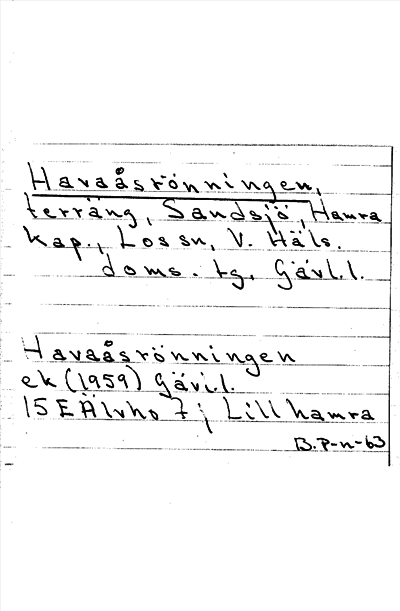 Havaåsrönningen,
terräng, Sandsjö, Hamra
kap., Los sn, V. Häls.
doms. tg, Gävl.l.
Havaåsrönningen
ek (1959) Gävl.l.
15 E Älvho 7 j Lillhamra
B. P-n-63